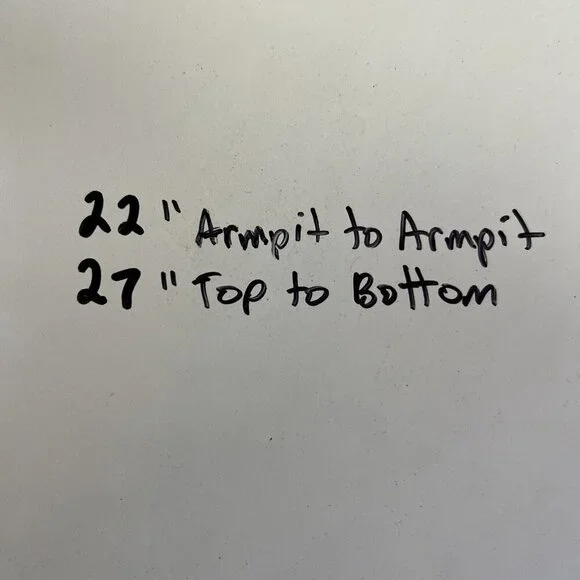 22" Armpit to Armpit
27" Top to Bottom